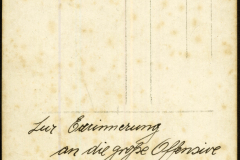 Zur Erinnerung
an die große Offensive